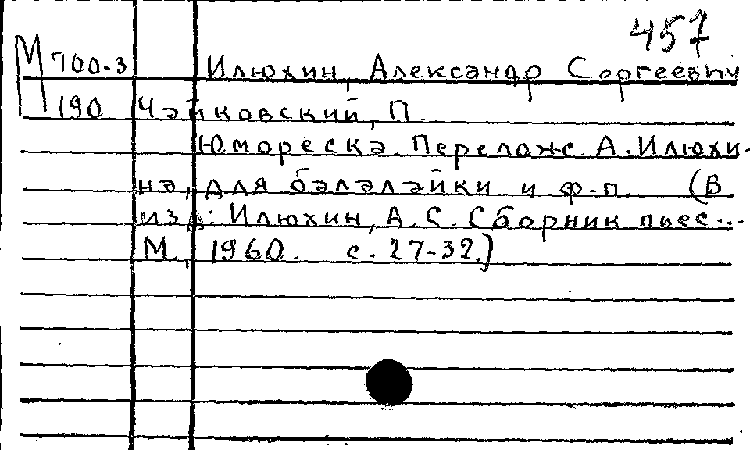 457
М 700-3 Илюхин, Александр Сергеевич
190 Чайковский, П.
Юмореска. Перелож. А. Илюхи-
на, для балалайки и ф-п. (В
изд: Илюхин, А. С. Сборник пьес...
М., 1960. с. 27-32.)